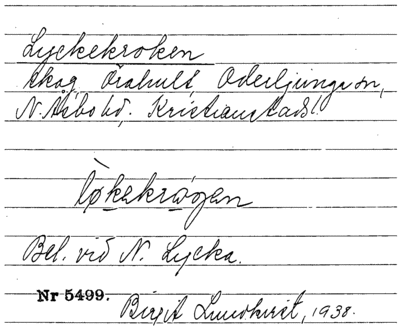 Lyckekroken
skog, Örahult, Oderljunga sn,
N. Åsbo hd, Kristianstads l.
lø̀kekrɷgen
Bel. vid N. Lycka.
Nr 5499.
Birgit Lundkvist, 1938.